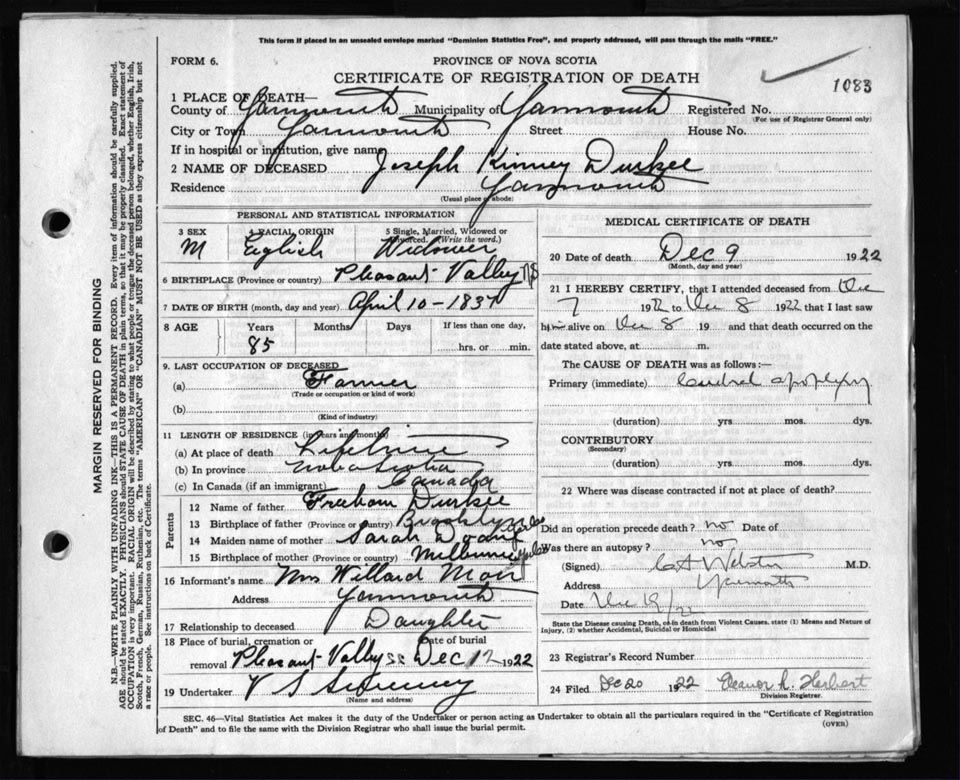 This form if placed in an unsealed envelope marked "Dominion Statistics Free", and properly addressed, will pass through the mails "FREE."
FORM 6.
PROVINCE OF NOVA SCOTIA
CERTIFICATE OF REGISTRATION OF DEATH
1083
1 PLACE OF DEATH—
County of Yarmouth Municipality of Yarmouth Registered No.
(For use of Registrar General only)
City or Town Yarmouth Street House No.
If in hospital or institution, give name
2 NAME OF DECEASED Joseph Kinney Durkee
Residence Yarmouth
(Usual place of abode)
PERSONAL AND STATISTICAL INFORMATION
3 SEX 4 RACIAL ORIGIN 5 Single, Married, Widowed or Divorced. (Write the word.)
M English Widower
6 BIRTHPLACE (Province or country) Pleasant Valley NS
7 DATE OF BIRTH (month, day and year) April 10-1837
8 AGE Years Months Days If less than one day,
85 hrs. or min.
9. LAST OCCUPATION OF DECEASED
(a) Farmer
(Trade or occupation or kind of work)
(b)
(Kind of industry)
11 LENGTH OF RESIDENCE (in years and months)
(a) At place of death Lifetime
(b) In province Nova Scotia
(c) In Canada (if an immigrant) Canada
Parents
12 Name of father Durkee
13 Birthplace of father (Province or country) Brooklyn
14 Maiden name of mother Sarah
15 Birthplace of mother (Province or country)
16 Informant's name Mrs Willard
Address Yarmouth
17 Relationship to deceased Daughter
18 Place of burial, cremation or Date of burial
removal Pleasant Valley Dec 12 1922
19 Undertaker V S Sweeney
(Name and address)
MEDICAL CERTIFICATE OF DEATH
20 Date of death Dec 9 1922
(Month, day and year)
21 I HEREBY CERTIFY, that I attended deceased from Dec
7 1922 to Dec 8 1922 that I last saw
him alive on Dec 8 19 and that death occurred on
date stated above, at m.
The CAUSE OF DEATH was as follows:—
Primary (immediate) apoplexy
(duration) yrs mos. dys.
CONTRIBUTORY
(Secondary)
(duration) yrs. mos. dys.
22 Where was disease contracted if not at place of death?
Did an operation precede death? no Date of
Was there an autopsy? no
(Signed) Webster M.D.
Address Yarmouth
Date Dec
State the Disease causing Death, or in death from Violent Causes, state (1) Means and Nature of
Injury, (2) whether Accidental, Suicidal or Homicidal
23 Registrar's Record Number
24 Filed Dec 20 1922 Eleanor L. Herbert
Division Registrar.
SEC. 46—Vital Statistics Act makes it the duty of the Undertaker or person acting as Undertaker to obtain all the particulars required in the "Certificate of Registration
of Death" and to file the same with the Division Registrar who shall issue the burial permit.
(OVER)
MARGIN RESERVED FOR BINDING
N.B.—WRITE PLAINLY WITH UNFADING INK—THIS IS A PERMANENT RECORD. Every item of information should be carefully supplied.
AGE should be stated EXACTLY. PHYSICIANS should STATE CAUSE OF DEATH in plain terms, so that it may be properly classified. Exact statement of
OCCUPATION is very important. RACIAL ORIGIN will be described by stating to what people or tongue the deceased person belonged, whether English, Irish,
Scotch, French, German, Russian, Ruthenian, etc. The terms "AMERICAN" or "CANADIAN" MUST NOT BE USED as they express citizenship but not
a race or people. See instructions on back of Certificate.